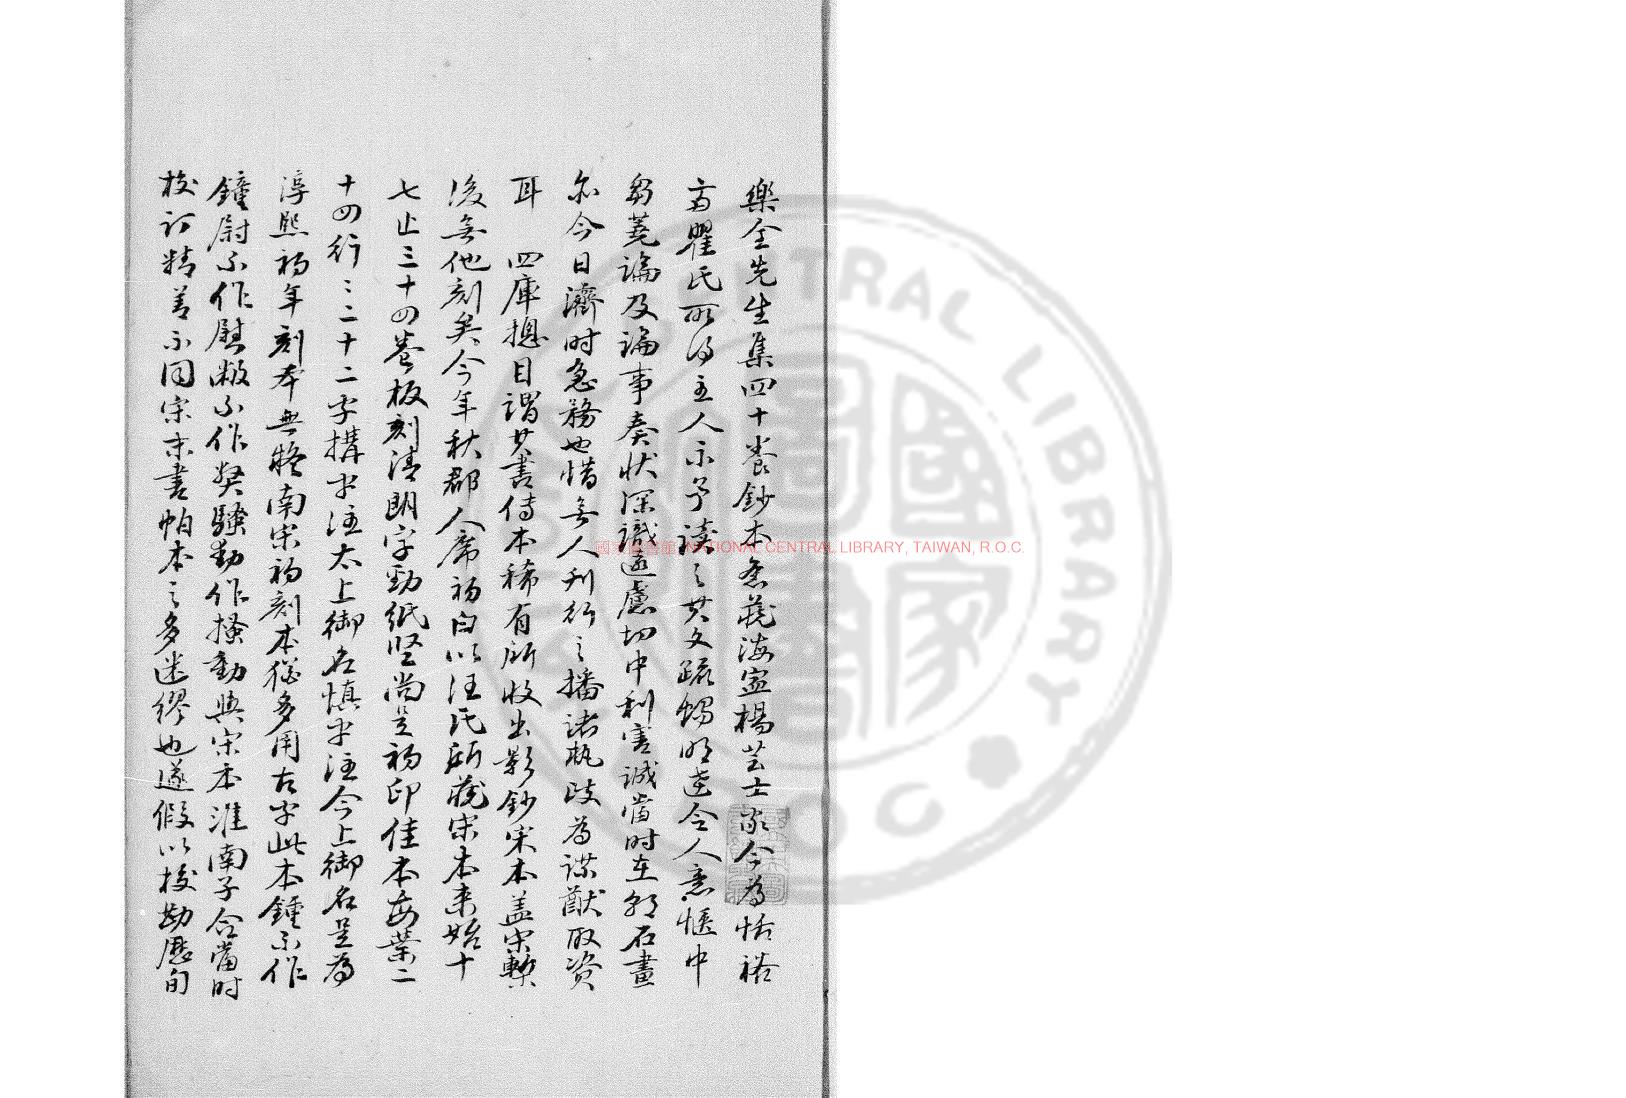 樂全先生集四十卷鈔本舊藏海寧楊芸士家今為恬裕
斋瞿氏所得主人示予讀之其文疏暢明達令人意愜中
芻蕘論及論事奏狀深識遠慮切中利害誠當時在朝石畫
亦今日濟時急務也惜無人刊行之播諸執政為謀猷取资
耳　四庫摠目謂其書傳本稀有所收出影鈔宋本盖宋槧
後無他刻矣今年秋郡人席初白以汪氏所藏宋本来始十
七止三十四卷板刻清朗字勁紙堅尚是初印佳本每葉二
十四行行二十二字搆字注太上御名慎字注今上御名是為
淳熙初年刻本無疑南宋初刻本猶多用古字此本鍾不作
鐘尉不作慰敝不作弊騷動作搔動與宋本淮南子合當時
校订精善不同宋末書帕本之多迷繆也遂假以校勘歷旬
國家圖書館 NATIONAL CENTRAL LIBRARY, TAIWAN, R.O.C.
CENTRAL LIBRARY
ROC